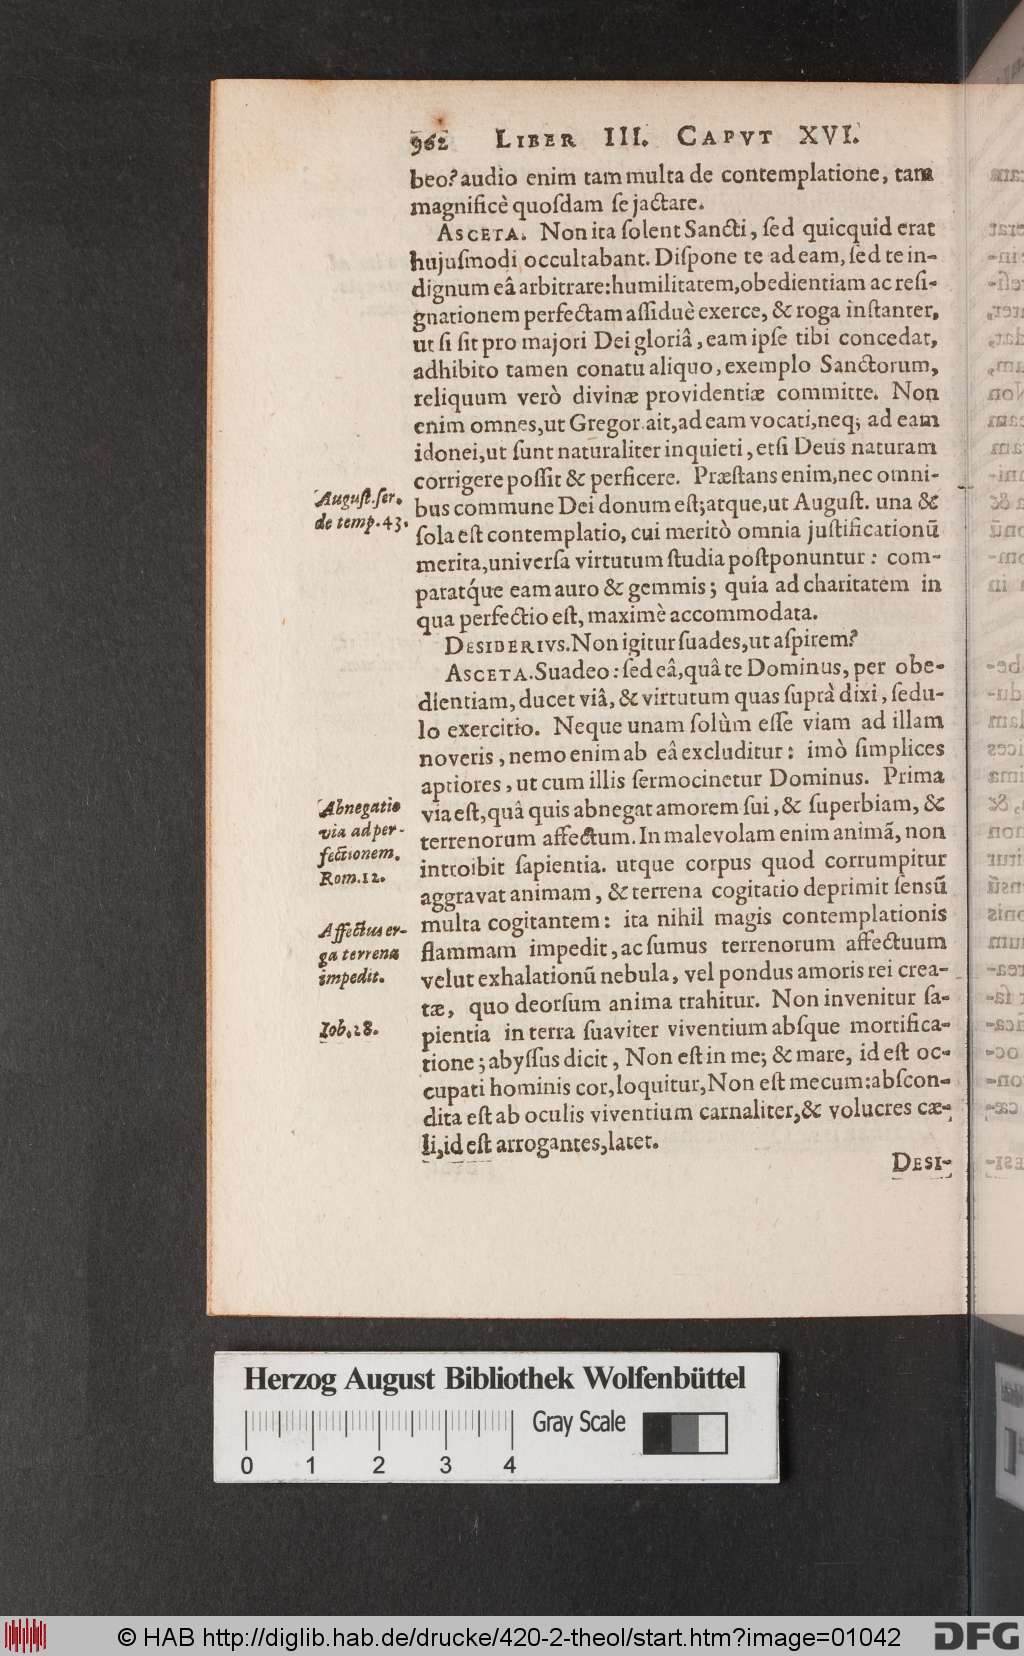 962 LIBER III. CAPVT XVI.
beo? audio enim tam multa de contemplatione, tam
magnificè quoſdam ſe jactare.
ASCETA. Non ita ſolent Sancti, ſed quicquid erat
hujuſmodi occultabant. Diſpone te ad eam, ſed te in-
dignum eâ arbitrare: humilitatem, obedientiam ac reſi-
gnationem perfectam aſſiduè exerce, & roga inſtanter,
ut ſi ſit pro majori Dei gloriâ, eam ipſe tibi concedat,
adhibito tamen conatu aliquo, exemplo Sanctorum,
reliquum verò divinæ providentiæ committe. Non
enim omnes, ut Gregor. ait, ad eam vocati, neq; ad eam
idonei, ut ſunt naturaliter inquieti, etſi Deus naturam
corrigere poſſit & perficere. Præſtans enim, nec omni-
bus commune Dei donum eſt; atque, ut Auguſt. una &
ſola eſt contemplatio, cui meritò omnia juſtificationũ
merita, univerſa virtutum ſtudia poſtponuntur: com-
paratq́ue eam auro & gemmis; quia ad charitatem in
qua perfectio eſt, maximè accommodata.
DESIDERIVS. Non igitur ſuades, ut aſpirem?
ASCETA. Suadeo: ſed eâ, quâ te Dominus, per obe-
dientiam, ducet viâ, & virtutum quas ſuprà dixi, ſedu-
lo exercitio. Neque unam ſolùm eſſe viam ad illam
noveris, nemo enim ab eâ excluditur: imò ſimplices
aptiores, ut cum illis ſermocinetur Dominus. Prima
via eſt, quâ quis abnegat amorem ſui, & ſuperbiam, &
terrenorum affectum. In malevolam enim animã, non
introibit ſapientia. utque corpus quod corrumpitur
aggravat animam, & terrena cogitatio deprimit ſenſũ
multa cogitantem: ita nihil magis contemplationis
flammam impedit, ac fumus terrenorum affectuum
velut exhalationũ nebula, vel pondus amoris rei crea-
tæ, quo deorſum anima trahitur. Non invenitur ſa-
pientia in terra ſuaviter viventium abſque mortifica-
tione; abyſſus dicit, Non eſt in me; & mare, id eſt oc-
cupati hominis cor, loquitur, Non eſt mecum: abſcon-
dita eſt ab oculis viventium carnaliter, & volucres cæ-
li, id eſt arrogantes, latet.
DESI-
Auguſt. ſer.
de temp. 43.
Abnegatio
via ad per-
fectionem.
Rom. 12.
Affectus er-
ga terrena
impedit.
Iob. 28.
Herzog August Bibliothek Wolfenbüttel
Gray Scale
0 1 2 3 4
© HAB http://diglib.hab.de/drucke/420-2-theol/start.htm?image=01042
DFG